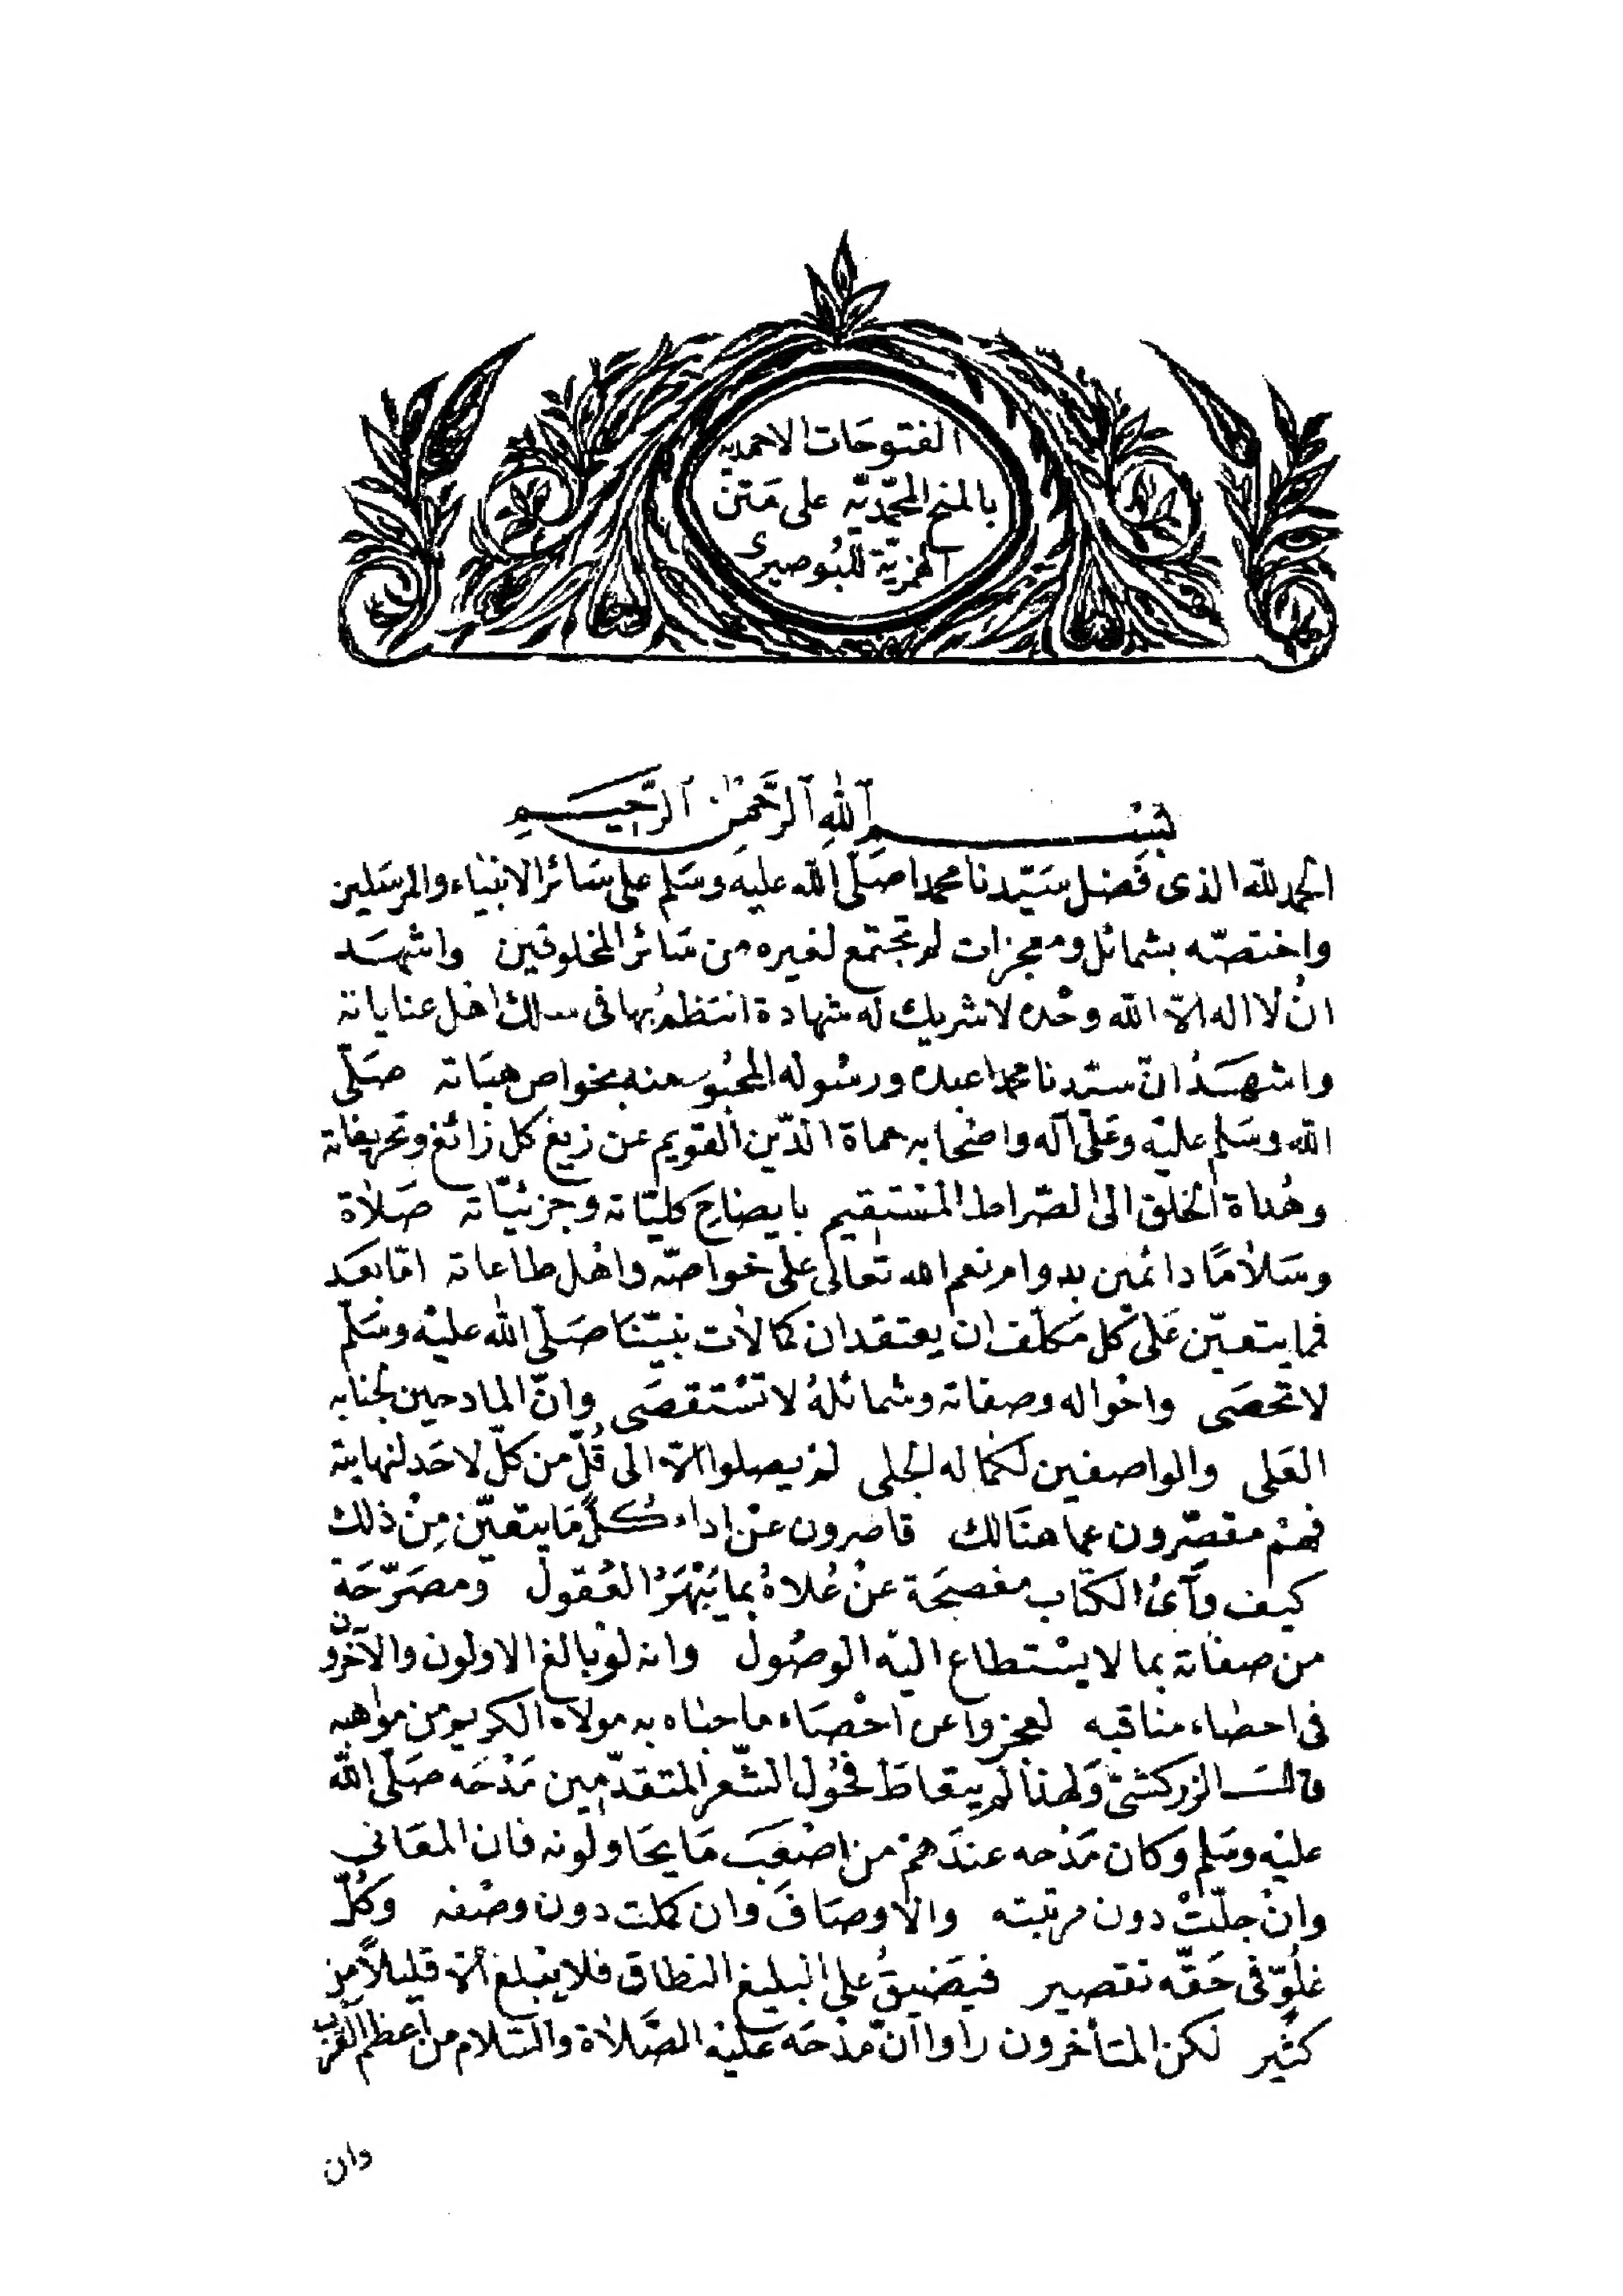 الفتوحَات الاحمديه
بالمنح المحمّديّه على مَتن
الهمزيّة للبُوصيرى
بِسْمِ ٱللهِ ٱلرَّحْمٰنِ ٱلرَّحِيمِ
الحمد لله الذى فَضل سَيّدنا محمدا صَلّى الله عليه وسَلم على سَائر الانبيَاء والمرسَلين
واختصّه بشمائل ومعجزات لم تجتمع لغيره من سَائر المخلوقين واشهَد
انْ لا اله الاّ الله وحْده لا شريك له شهادة انتَظمُ بها فى سلك اهْل عناياته
واشهَدُ انّ سيّدنا محمدا عبده ورسُوله المحبُو منه بخواص هبَاته صَلّى
الله وسَلم عليْه وعَلى آله واصْحابه حماة الدّين القويم عن زيغ كل زائغ وتحريفاته
وهُداة الخلق الى الصّراط المسْتقيم بايضاحَ كليّاته وجزئيّاته صَلاة
وسَلامًا دائمين بدوام نعم الله تعالى على خواصّه واهْل طاعاته امّا بعَد
فمما يتعيّن عَلى كل مكلّف ان يعتقد ان كمالات نبيّنا صَلّى الله عليْه وسَلّم
لا تحصَى واحْواله وصفاته وشمائلهُ لا تسْتقصَى وانّ المادحين لجنابه
العَلى والواصفين لكماله الجلى لمْ يصلوا الاّ الى قُلّ من كلّ لا حَد لنهايته
فهمْ مقصّرون عما هنَالك قاصرون عنْ اداء كُلّ مَا يتعيّن مِنْ ذلك
كيف وآىُ الكتاب مفصحَة عنْ عُلاهُ بما يَبْهَرُ العُقول ومصَرّحَة
من صفاته بما لا يسْتطاع اليْه الوصُول وانه لوْ بالغ الاولون والآخرون
فى احصاء مناقبه لعجزوا عن احْصَاء ما حبَاه به مولاه الكريم من موَاهبه
قالَ الزركشىّ وَلهذا لم يتعاطَ فحُول الشّعر المتقدّمين مَدْحَه صَلّى الله
عليْه وسَلم وَكان مَدْحه عندَهمْ من اصْعَب مَا يحَاولونه فان المعَانى
وانْ جلّتْ دون مرتبته والاوصَافَ وان كملت دون وصْفه وكُلّ
غلُوّ فى حَقّه تقصير فيَضيقُ على البليغ النطاق فلا يبْلغ الاّ قليلاً من
كثير لكن المتأخرون راوا انّ مَدْحَه عليْه الصَّلاة والسَّلام من اعظم القرب
وان